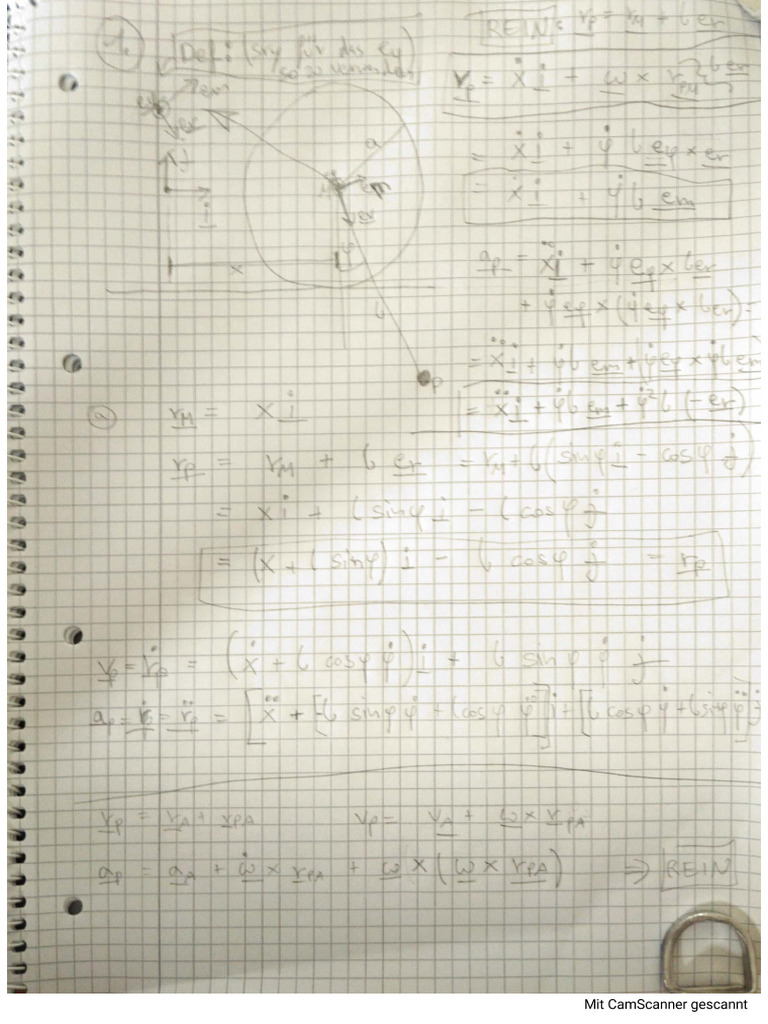 1. Def: (sry für das eφ
so zu verwenden)
em
er
j
i
a
M
em
er
x
φ
b
P
REIN: rp = rM + b er
vp = ẋ i + ω × rPM } b er
= ẋ i + φ̇ b eφ × er
= ẋ i + φ̇ b em
ap = ẍ i + φ̈ eφ × b er
+ φ̇ eφ × (φ̇ eφ × b er) =
= ẍ i + φ̈ b em + (φ̇ eφ × φ̇ b em
= ẍ i + φ̈ b em + φ̇² b (-er)
a) rM = x i
rp = rM + b er = rM + b (sinφ i - cosφ j)
= x i + b sinφ i - b cosφ j
= (x + b sinφ) i - b cosφ j = rp
vp = ṙp = (ẋ + b cosφ φ̇) i + b sinφ φ̇ j
ap = r̈p = [ẍ + [-b sinφ φ̇ + b cosφ φ̈] i + [b cosφ φ̇ + b sinφ φ̈] j
rp = rA + rPA vp = vA + ω × rPA
ap = aA + ω̇ × rPA + ω × (ω × rPA) ⇒ REIN
Mit CamScanner gescannt